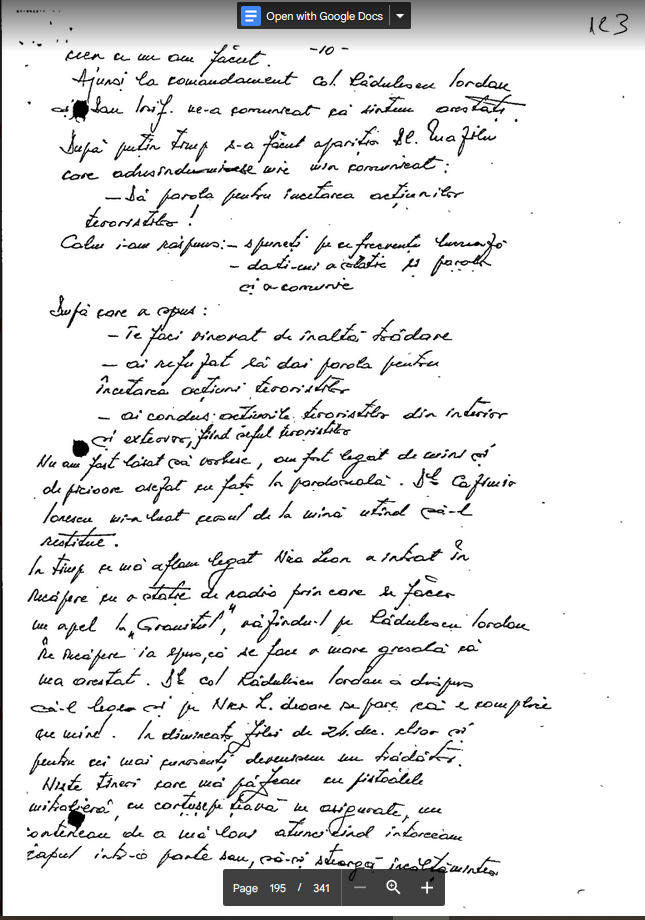 Open with Google Docs
123
-10-
ceea ce nu am făcut.
Ajunși la comandament col. Rădulescu Iordan
și Dan Iosif. ne-a comunicat că sîntem arestați.
După puțin timp s-a făcut apariția Dl. Mazilu
care adresîndu-mi-se mie mi-a comunicat:
– Dă parola pentru încetarea acțiunilor
teroristilor!
Calm i-am răspuns: – spuneți pe ce frecvență lucrează
– dați-mi o stație și parola
și o comunic
După care a spus:
– Te faci vinovat de înaltă trădare
– ai refuzat să dai parola pentru
încetarea acțiuni teroristilor
– ai condus acțiunile teroristilor din interior
și exterior, fiind șeful teroristilor
Nu am fost lăsat să vorbesc, am fost legat de mîini și
de picioare așezat cu fața la pardoseală. Dl Cazimir
Ionescu mi-a luat ceasul de la mînă uitînd să-l
restitue.
In timp ce mă aflam legat Nica Leon a intrat în
încăpere cu o stație de radio prin care se făcea
un apel la „Granitul", văzîndu-l pe Rădulescu Iordan
în încăpere ia spus, că se face o mare greșală că
m-a arestat. Dl col Rădulescu Iordan a dispus
să-l lege și pe Nica L. deoarece se pare că e complice
cu mine. In dimineața zilei de 24. dec. chiar și
pentru cei mai cunoscuți devenisem un trădător.
Niste tineri care mă păzeau cu pistoalele
mitralieră, cu cartușe pe țeavă ne asigurate, nu
conteneau de a mă lovi atunci cînd întorceam
capul într-o parte sau, să-și șteargă încălțămintea
Page 195 / 341